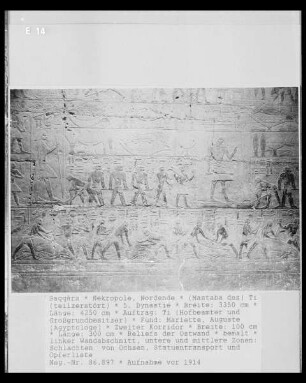 E 14
Saqqara * Nekropole, Nordende * (Mastaba des) Ti
(teilzerstört) * 5. Dynastie * Breite: 3350 cm *
Länge: 4250 cm * Auftrag: Ti (Hofbeamter und
Großgrundbesitzer) * Fund: Mariette, Auguste
(Ägyptologe) * Zweiter Korridor * Breite: 100 cm
* Länge: 300 cm * Reliefs der Ostwand * Bemalt *
linker Wandabschnitt, untere und mittlere Zonen:
Schlachten von Ochsen, Statuentransport und
Opferliste
Neg.-Nr. 86.897 * Aufnahme vor 1914